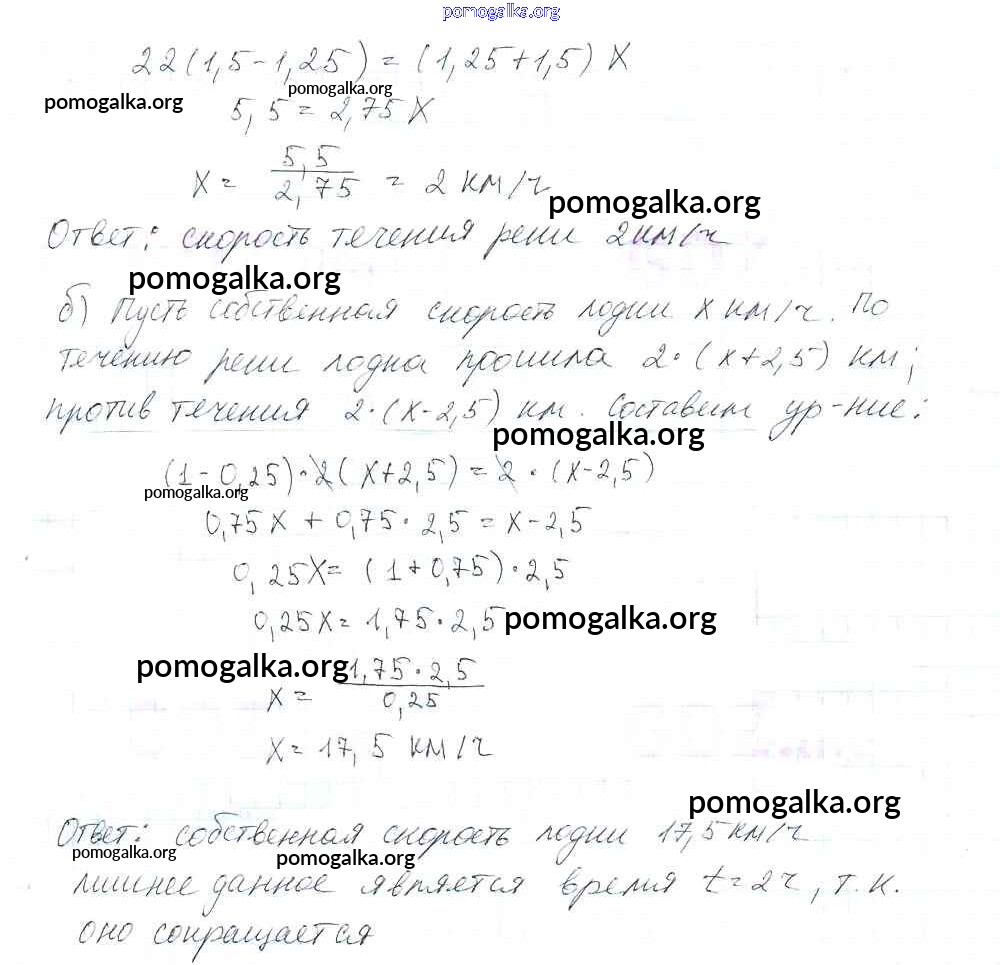 pomogalka.org
22(1,5-1,25) = (1,25+1,5) X
pomogalka.org
pomogalka.org
5,5 = 2,75 X
X = 5,5 / 2,75 = 2 км/ч
pomogalka.org
Ответ: скорость течения реки 2 км/ч
pomogalka.org
б) Пусть собственная скорость лодки x км/ч. По
течению реки лодка прошла 2·(x+2,5) км;
против течения 2·(x-2,5) км. Составим ур-ние:
pomogalka.org
(1-0,25)·2(x+2,5) = 2·(x-2,5)
pomogalka.org
0,75x + 0,75·2,5 = x-2,5
0,25x = (1+0,75)·2,5
0,25x = 1,75·2,5
pomogalka.org
pomogalka.org
x = 1,75·2,5 / 0,25
x = 17,5 км/ч
pomogalka.org
Ответ: собственная скорость лодки 17,5 км/ч
pomogalka.org
pomogalka.org
лишнее данное является время t=2ч, т.к.
оно сокращается